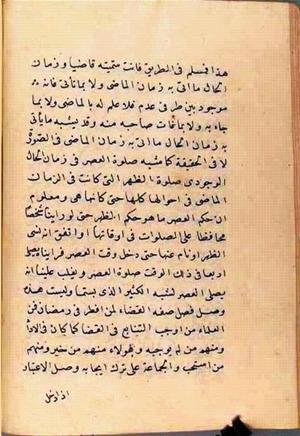 هذا فسلم فى الطريق فانت متميته قاضيا وزمان
الحال ما اتى به زمان الماضى ولا بما تاتى فانه
موجود بين طرفى عدم فلا علم له بالماضى ولا بما
جاء به ولا بما فات صاحبه منه وقد يشبه ماياتى
به زمان الحال ما اتى به زمان الماضى فى الصورة
لا فى الحقيقة كما تشبه صلوة العصر فى زمان الحال
الوجودى صلوة الظهر التى كانت فى الزمان
الماضى فى احوالها كلها حتى كانها هى ومعلوم
ان حكم العصر ما هو حكم الظهر حتى لو راينا شخصا
محافظا على الصلوات فى اوقاتها واتفق انه نسى
الظهر او نام عنها حتى دخل وقت العصر فراينا يصلى
اربعا فى ذلك الوقت صلوة العصر ويغلب علينا انه
يصلى العصر لشبه الكثير الذى بينهما وليست هذه
وصل فصل صفه القضاء لمن افطر فى رمضان فمن
العلماء من اوجب التتابع فى القضا كما كان فى الاداء
ومنهم من لم يوجبه وهولاء منهم من خير ومنهم
من استحب والجماعة على ترك ايجابه وصل الاعتبار
اذا دخل